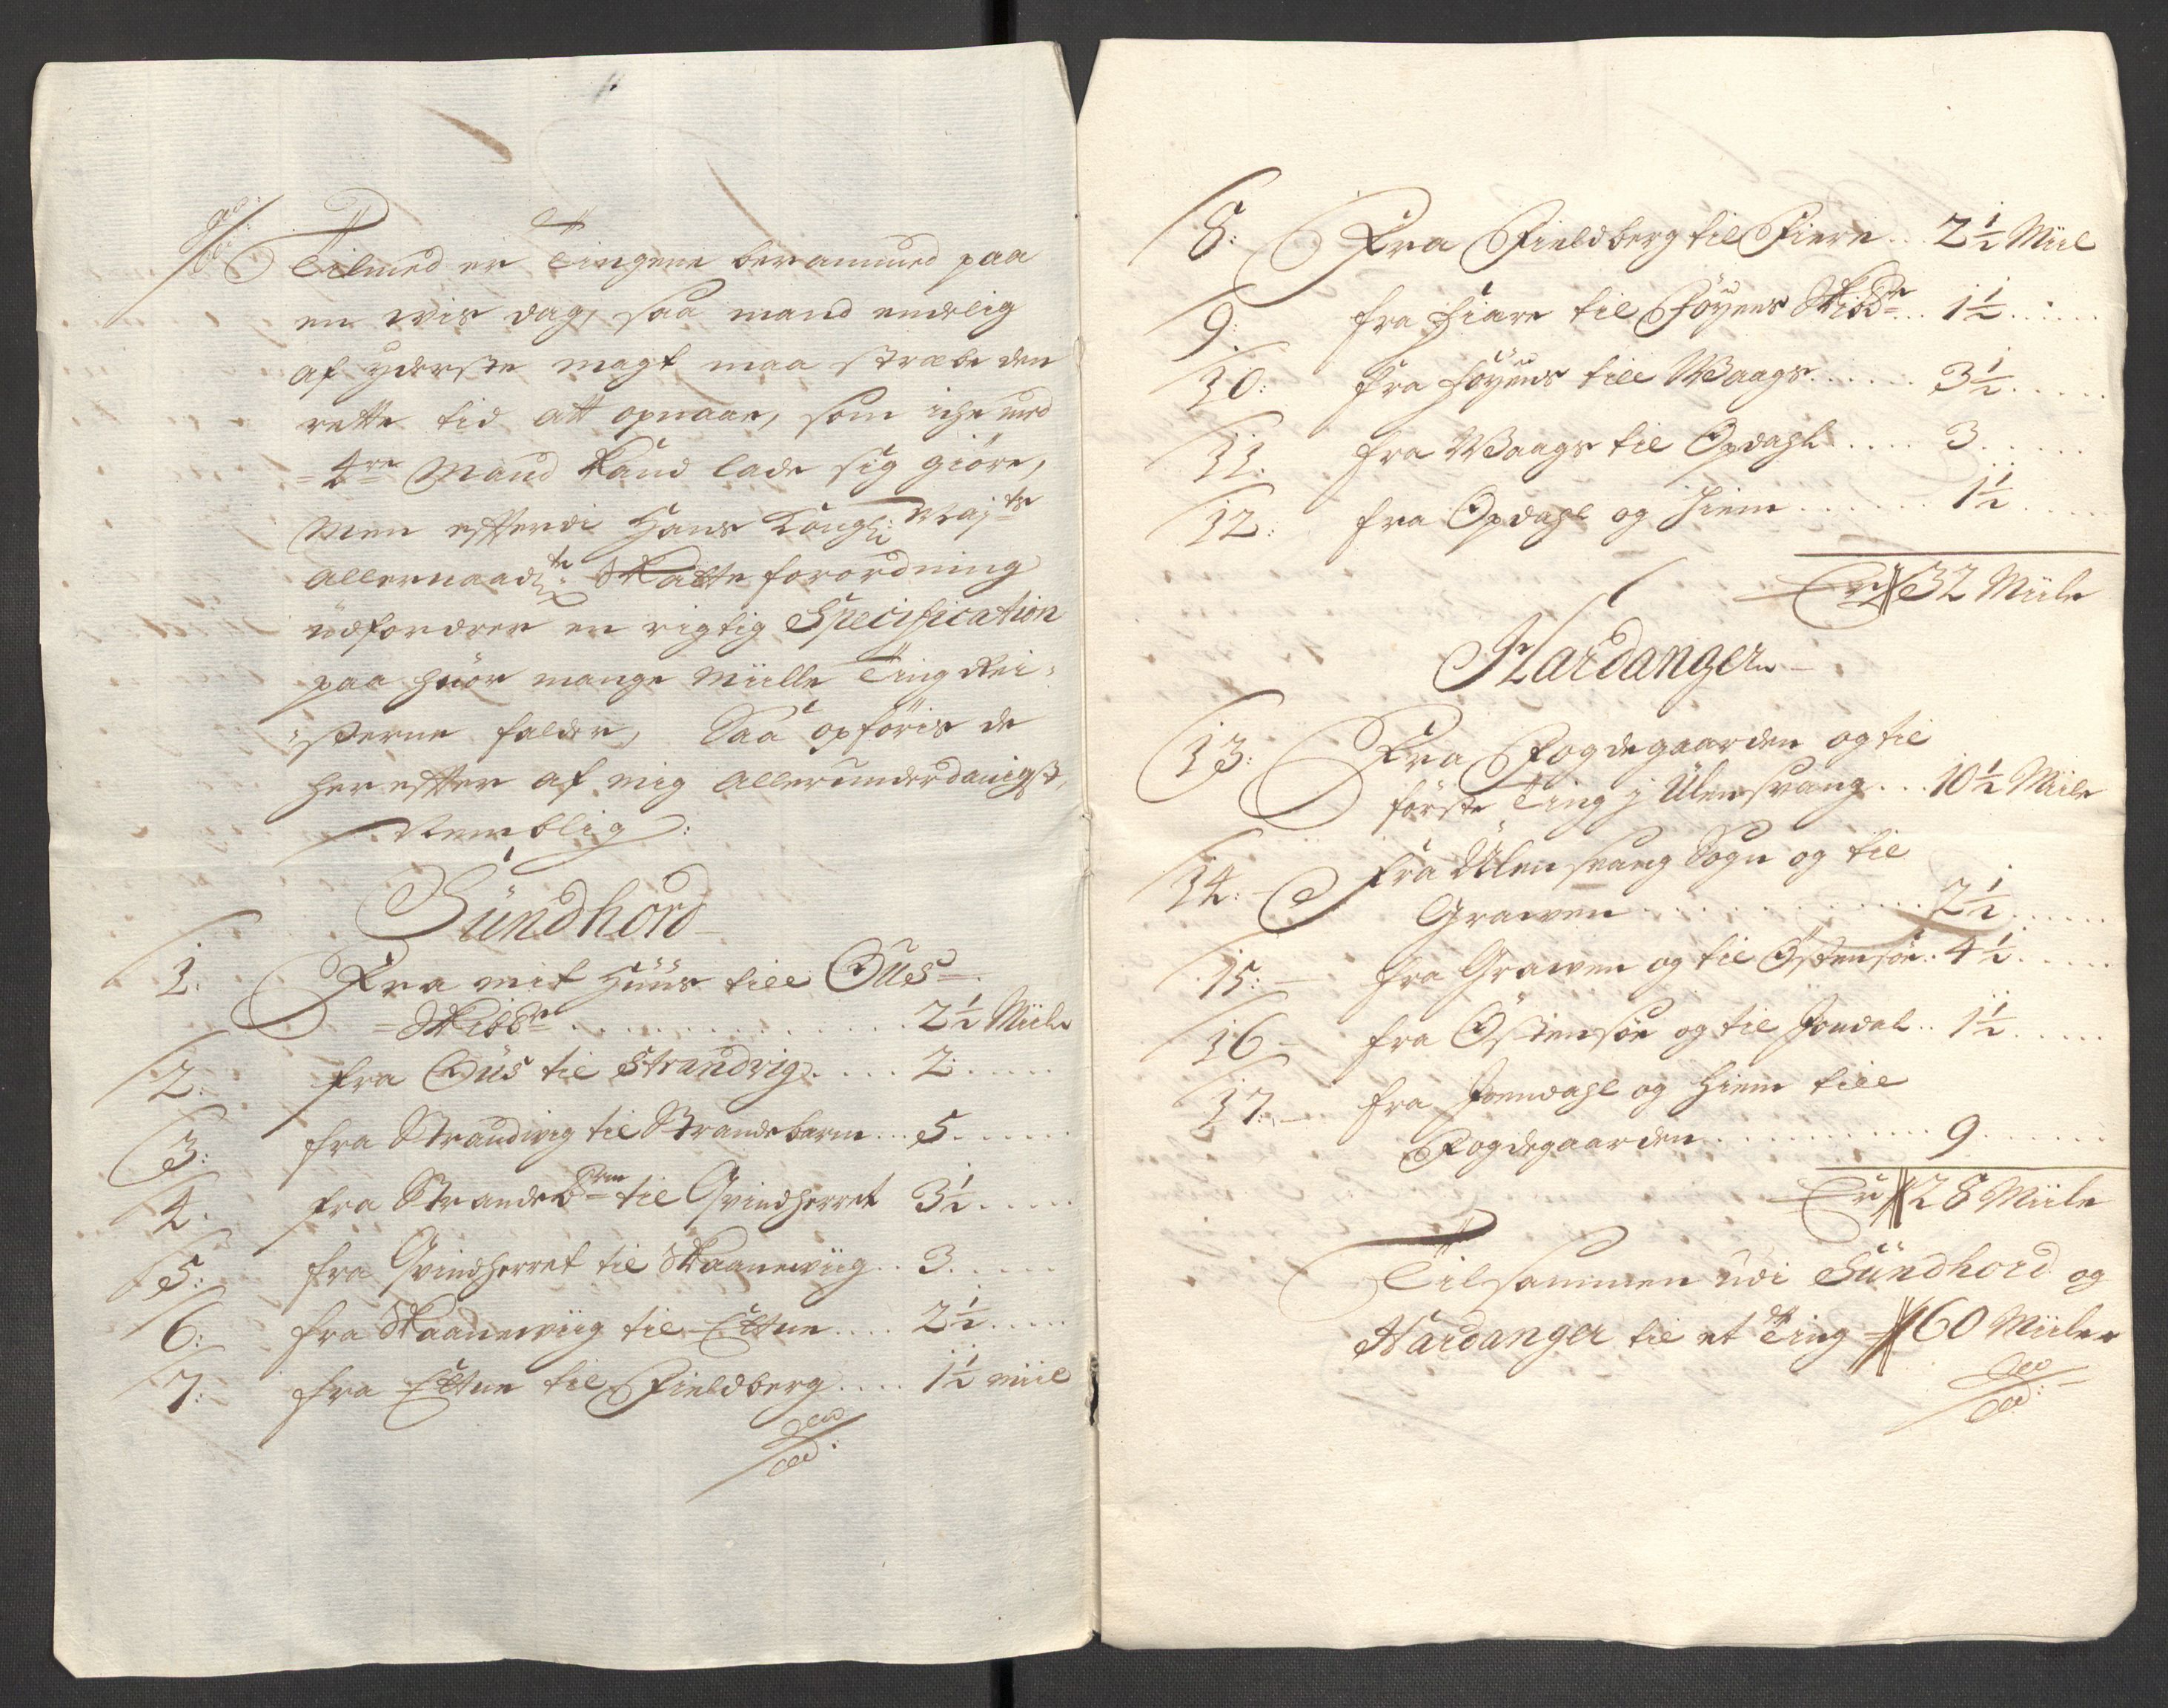 Tilmed er Tingene berammed paa
en vis dag, saa mand endelig
af yderste magt maa stræbe den
rette tid att opnaae, som iche med
=4re Mand Kand lade sig giöre,
Men efterdi Hans Kongl: Maj:ts
Allernaadste Skatte forordning
udfordrer en rigtig Specification
paa huor mange Miille Ting Rei=
=serne falder, Saa opföris de
her efter af mig Allerunderdanigst,
Nemblig:
Sündhord
1. Fra mit Huus till Ous=
=Skibbr. . . . 2½ Miile
2. fra Ous til Strandvig . . . . 2 . . . .
3: fra Strandvig til Strandebarm . . . 5 . . . .
4. fra Strandebrm til Qvindherret 3½ . . . .
5: fra Qvindherret til Skaaneviig . . 3 . . . .
6: fra Skaanevüig til Ettne . . . . 2½ . . . .
7: fra Ettne til Fieldberg . . . . 1½ miil
8: Fra Fieldberg til Fiere . . . 2½ Miil
9: fra Fiære til Föyens Skibbr . . 1½ . . . .
10: fra Föyens till Waags . . . . . 3½ . . . .
11: fra Waags til Opdahl . . . . 3 . . . .
12: fra Opdahl og hiem . . . . . . 1½ . . . .
Er 32 Miile
Hardanger
13: Fra Fogdegaarden og til
förste Ting j Ulensvang . . . 10½ Miile
14: fra Ulensvang Sogn og til
Graven . . . . . . . . 2½ . . . .
15: fra Graven og til Östensöe . 4½ . . . .
16 fra Östensöe og til Jondal . . 1½ . . . .
17: fra Jondahl og hiem till
Fogdegaarden . . . . . . . . 9 . . . .
Er 28 Miile
Tilsammen udi Sündhord og
Hardanger til et Ting 60 Miile